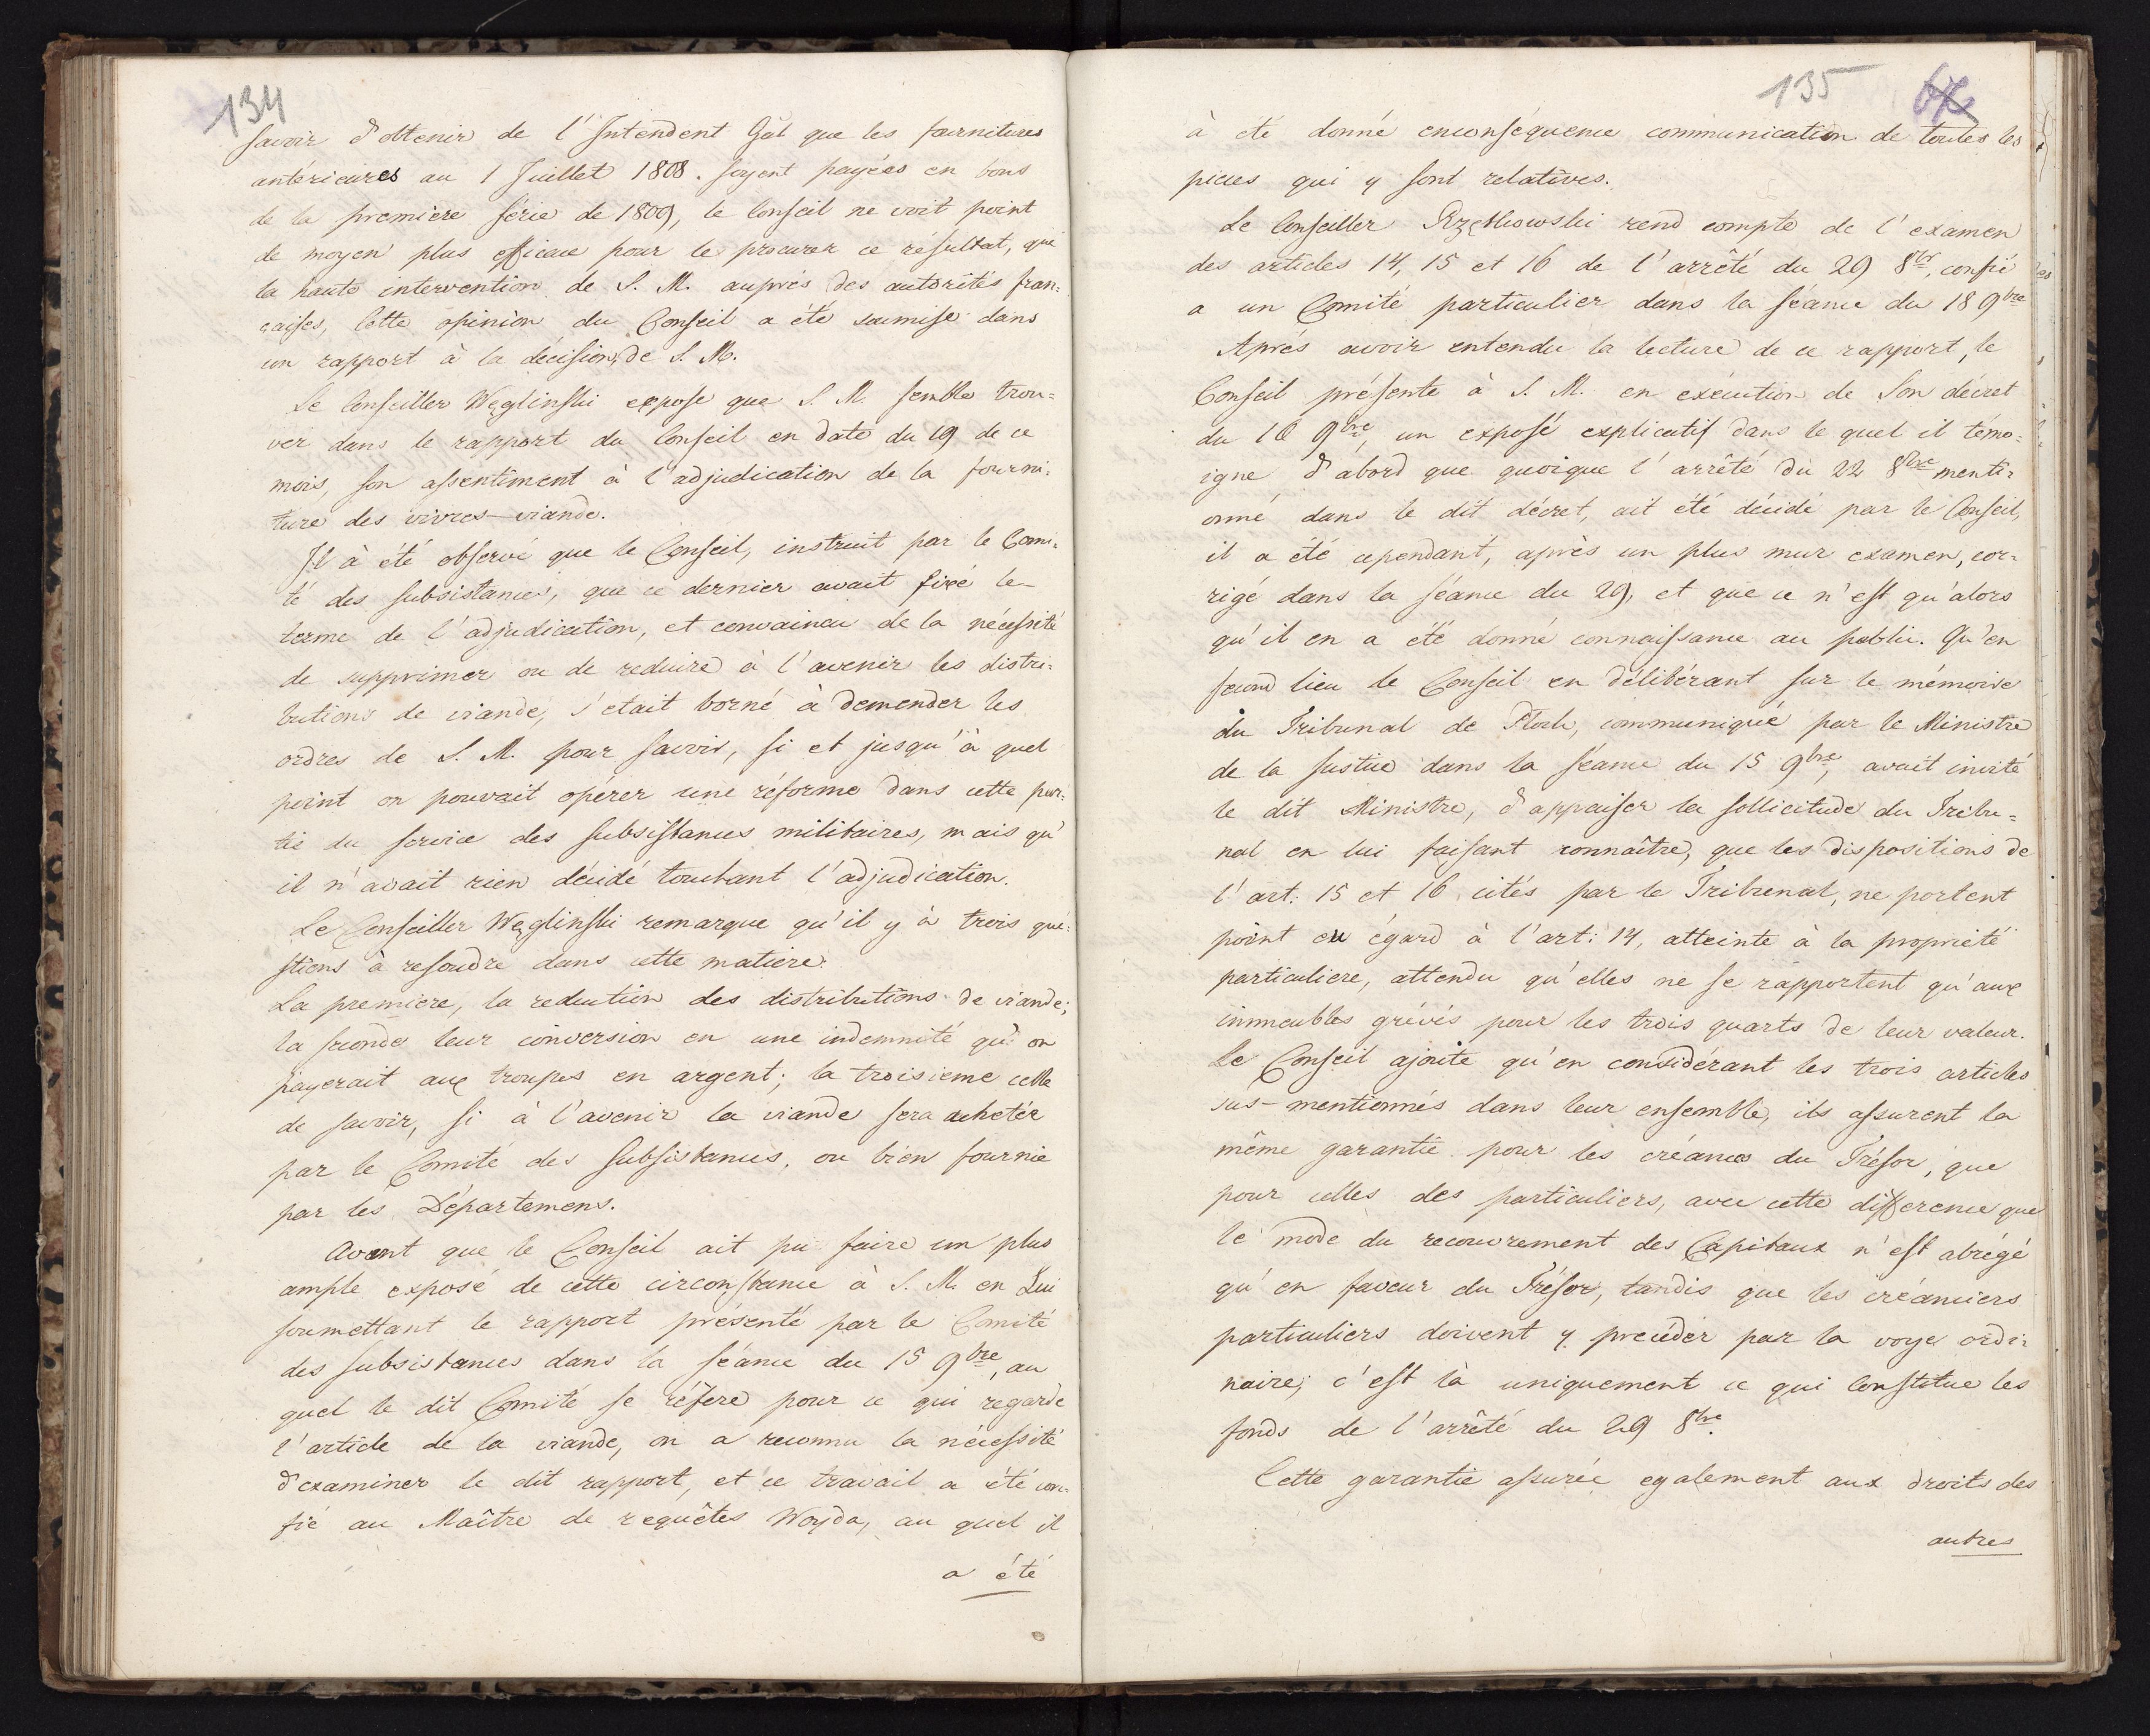 134
savoir d'obtenir de l'Intendent Gāl que les fournitures
antérieures au 1 Juillet 1808. soyent payées en bons
de la premiere série de 1809, le Conseil ne voit point
de moyen plus efficace pour le procurer ce résultat, que
la haute intervention de S. M. auprès des autorités fran=
çaises, Cette opinion du Conseil a été soumise dans
un rapport à la décision, de S. M.
Le Conseiller Węglinski expose que S. M. semble trou=
ver dans le rapport du Conseil en date du 19 de ce
mois, son assentiment à l'adjudication de la fourni=
ture des vivres-viande.
Il à été observé que le Conseil, instruit par le Comi=
té des subsistances, que ce dernier avait fixé le
terme de l'adjudication, et convaincu de la nécessité
de supprimer ou de reduire à l'avenir les distri=
butions de viande, s'etait borné à demender les
ordres de S. M. pour savoir, si et jusqu'à quel
point on pouvait opérer une réforme dans cette par=
tie du service des subsistances militaires, mais qu'
il n'avait rien décidé touchant l'adjudication.
Le Conseiller Węglinski remarque qu'il y à trois que=
stions à resoudre dans cette matiere.
La premiere, la reduction des distributions de viande;
la seconde leur conversion en une indemnité qu'on
payerait aux troupes en argent; la troisieme celle
de savoir, si à l'avenir la viande sera achetée
par le Comité des Subsistances, ou bien fournie
par les Départemens.
Avant que le Conseil ait pu faire un plus
ample exposé de cette circonstance à S. M. en Lui
soumettant le rapport présenté par le Comité
des subsistances dans la séance du 15 9bre, au
quel le dit Comité se réfere pour ce qui regarde
l'article de la viande, on a reconnu la nécessité
d'examiner le dit rapport, et ce travail a été con=
fié au Maître de requêtes Woyda, au quel il
a été
135
à eté donné enconséquence communication de toutes les
pieces qui y sont relatives.
Le Conseiller Rzętkowski rend compte de l'examen
des articles 14, 15 et 16 de l'arrêté du 29 8br, confié
a un Comité particulier dans la séance du 18 9bre
Après avoir entendu la lecture de ce rapport, le
Conseil présente à S. M. en exécution de Son décret
du 10 9bre, un exposé explicatif dans le quel il témo=
igne d'abord que quoique l'arrêté du 22 8bre menti=
onné dans le dit décret, ait été décidé par le Conseil,
il a été cependant, après un plus mur examen, cor=
rigé dans la séance du 29, et que ce n'est qu'alors
qu'il en a été donné connaissance au public. Qu'en
second lieu le Conseil en délibérant sur le mémoire
du Tribunal de Plock, communiqué par le Ministre
de la Justice dans la séance du 15 9bre, avait invité
le dit Ministre, d'appaiser la sollicitude du Tribu=
nal en lui faisant connaître, que les dispositions de
l'art: 15 et 16 cités par le Tribunal, ne portent
point eu égard à l'art: 14, atteinte à la proprieté
particuliere, attendu qu'elles ne se rapportent qu'aux
immeubles grévés pour les trois quarts de leur valeur.
Le Conseil ajoute qu'en considérant les trois articles
sus-mentionnés dans leur ensemble, ils assurent la
même garantie pour les créances du Trésor, que
pour celles des particuliers, avec cette difference que
le mode du recouvrement des Capitaux n'est abrégé
qu'en faveur du Trésor, tandis que les créanciers
particuliers doivent y proceder par la voye ordi=
naire; c'est là uniquement ce qui Constitue les
fonds de l'arrêté du 29 8bre.
Cette garantie assurée egalement aux droits des
autres